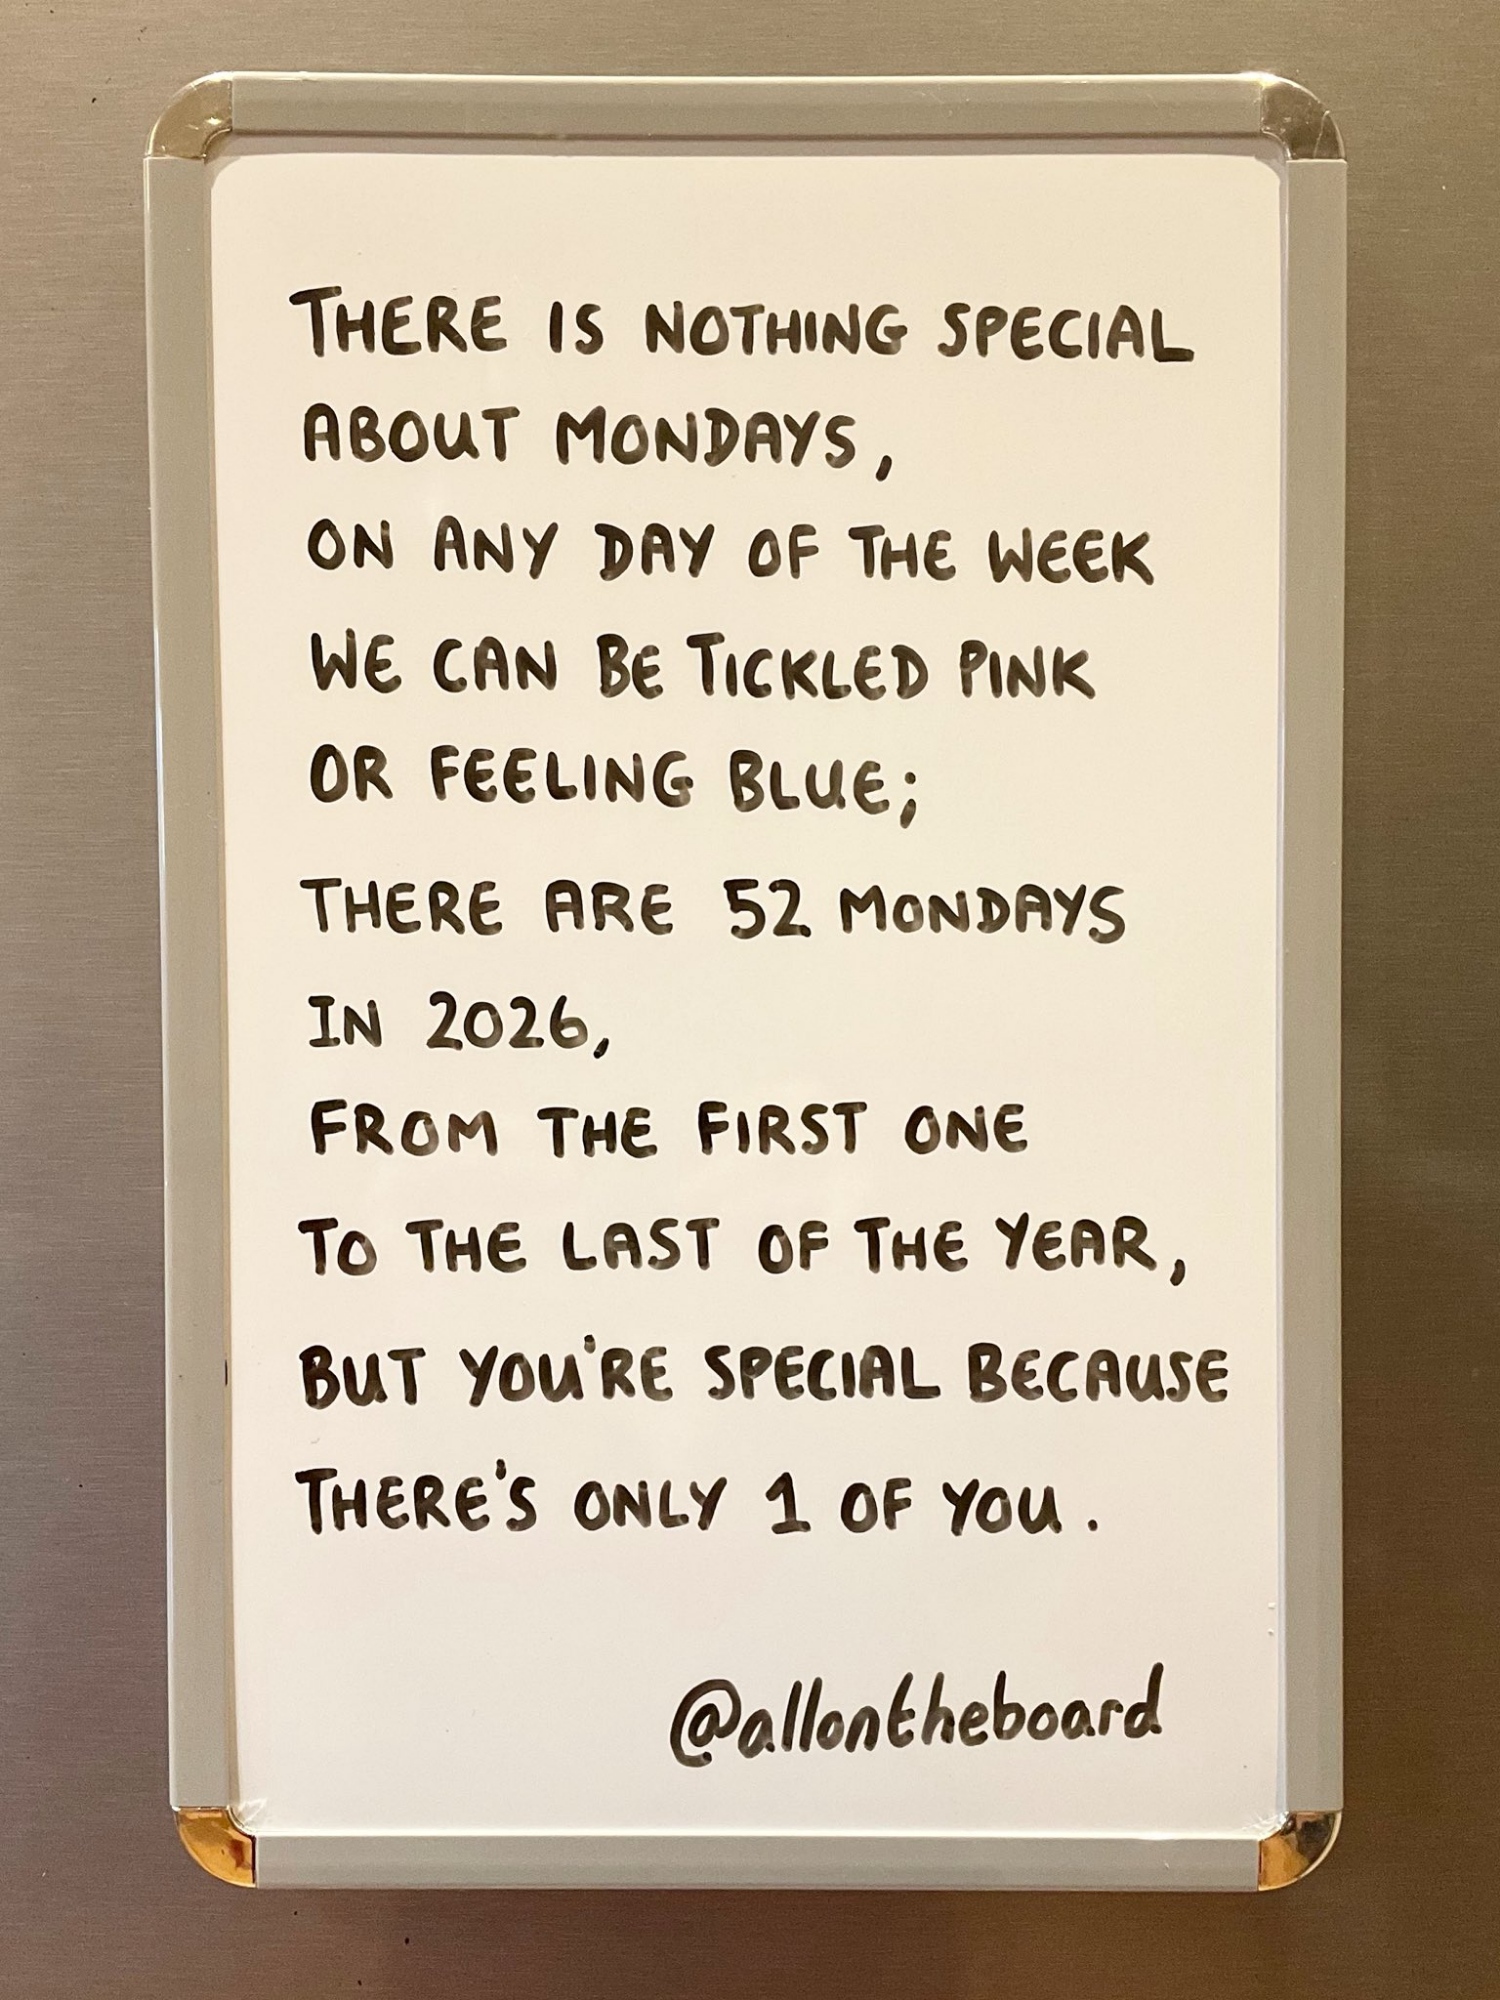 THERE IS NOTHING SPECIAL
ABOUT MONDAYS,
ON ANY DAY OF THE WEEK
WE CAN BE TICKLED PINK
OR FEELING BLUE;
THERE ARE 52 MONDAYS
IN 2026,
FROM THE FIRST ONE
TO THE LAST OF THE YEAR,
BUT YOU'RE SPECIAL BECAUSE
THERE'S ONLY 1 OF YOU.
@allontheboard